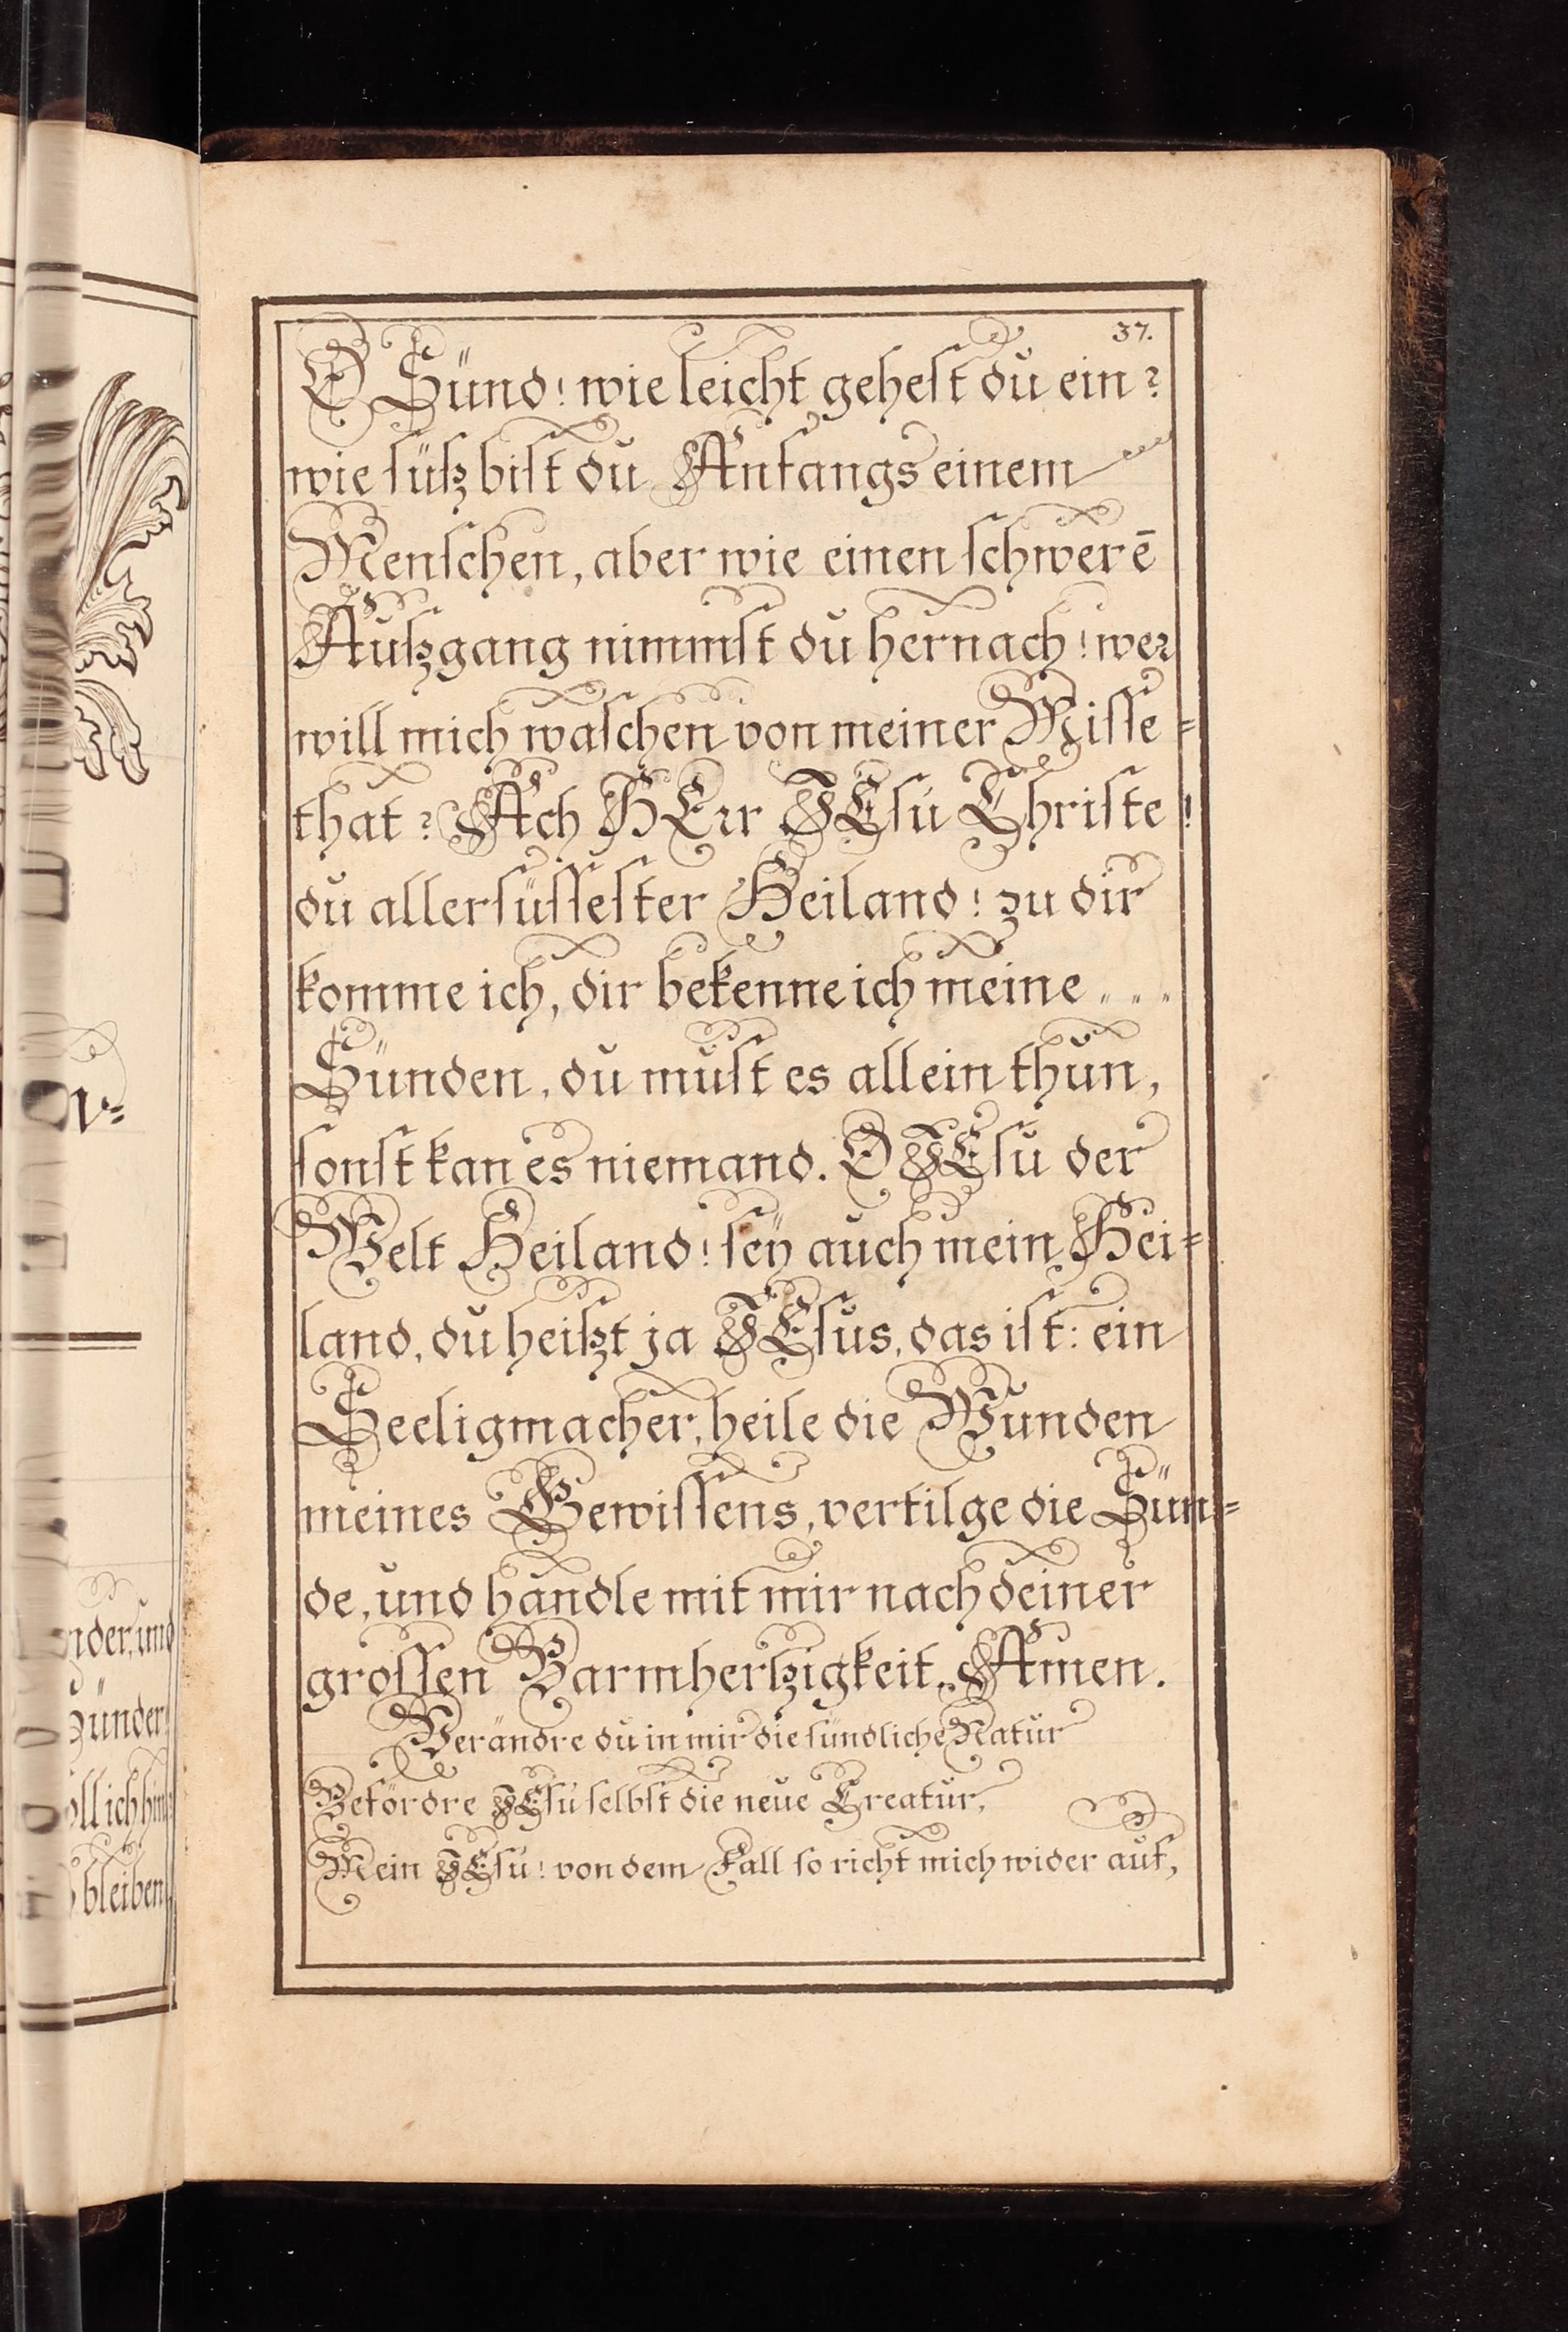 37.
O Sünd! wie leicht gehest du ein?
wie süß bist du Anfangs einem
Menschen, aber wie einen schwerē
Außgang nimmst du hernach! wer
will mich waschen von meiner Misse=
that? Ach HErr JEsu Christe!
du allersüssester Heiland! zu dir
komme ich, dir bekenne ich meine
Sünden, du must es allein thun,
sonst kan es niemand. O JEsu der
Welt Heiland! seÿ auch mein Hei=
land, du heißt ja JEsus, das ist: ein
Seeligmacher, heile die Wunden
meines Gewissens, vertilge die Sün=
de, und handle mit mir nach deiner
grossen Barmhertzigkeit. Amen.
Verändre du in mir die sündliche Natur
Befördre JEsu selbst die neue Creatur,
Mein JEsu! von dem Fall so richt mich wider auf,